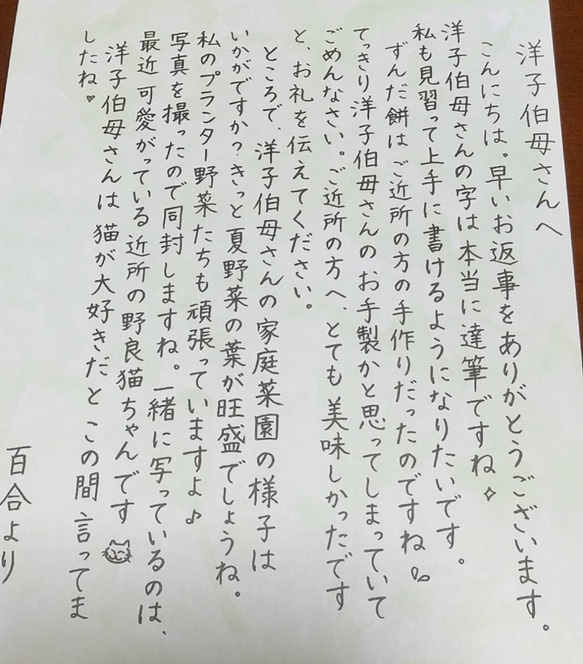 洋子伯母さんへ
こんにちは。早いお返事をありがとうございます。
洋子伯母さんの字は本当に達筆ですね✧
私も見習って上手に書けるようになりたいです。
ずんだ餅はご近所の方の手作りだったのですね。
てっきり洋子伯母さんのお手製かと思ってしまっていて
ごめんなさい。ご近所の方へ、とても美味しかったです
と、お礼を伝えてください。
ところで、洋子伯母さんの家庭菜園の様子は
いかがですか?きっと夏野菜の葉が旺盛でしょうね。
私のプランター野菜たちも頑張っていますよ♪
写真を撮ったので同封しますね。一緒に写っているのは、
最近可愛がっている近所の野良猫ちゃんです
洋子伯母さんは猫が大好きだとこの間言ってま
したね♡
百合より